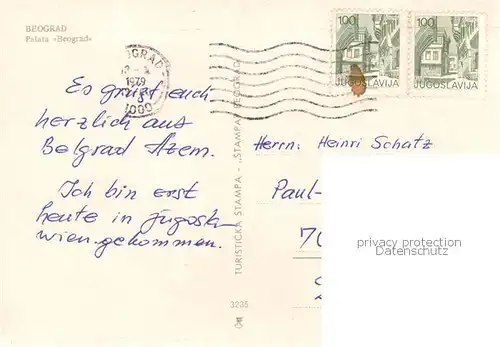 BEOGRAD
Palata »Beograd«
1979
100
JUGOSLAVIJA
100
JUGOSLAVIJA
Es grüßt euch
herzlich aus
Belgrad Azem.
Ich bin erst
heute in jugosla
wien gekommen.
TURISTIČKA ŠTAMPA - „ŠTAMPA“ BEOGRAD
3235
Herrn: Heinri Schatz
Paul-
70
privacy protection
Datenschutz